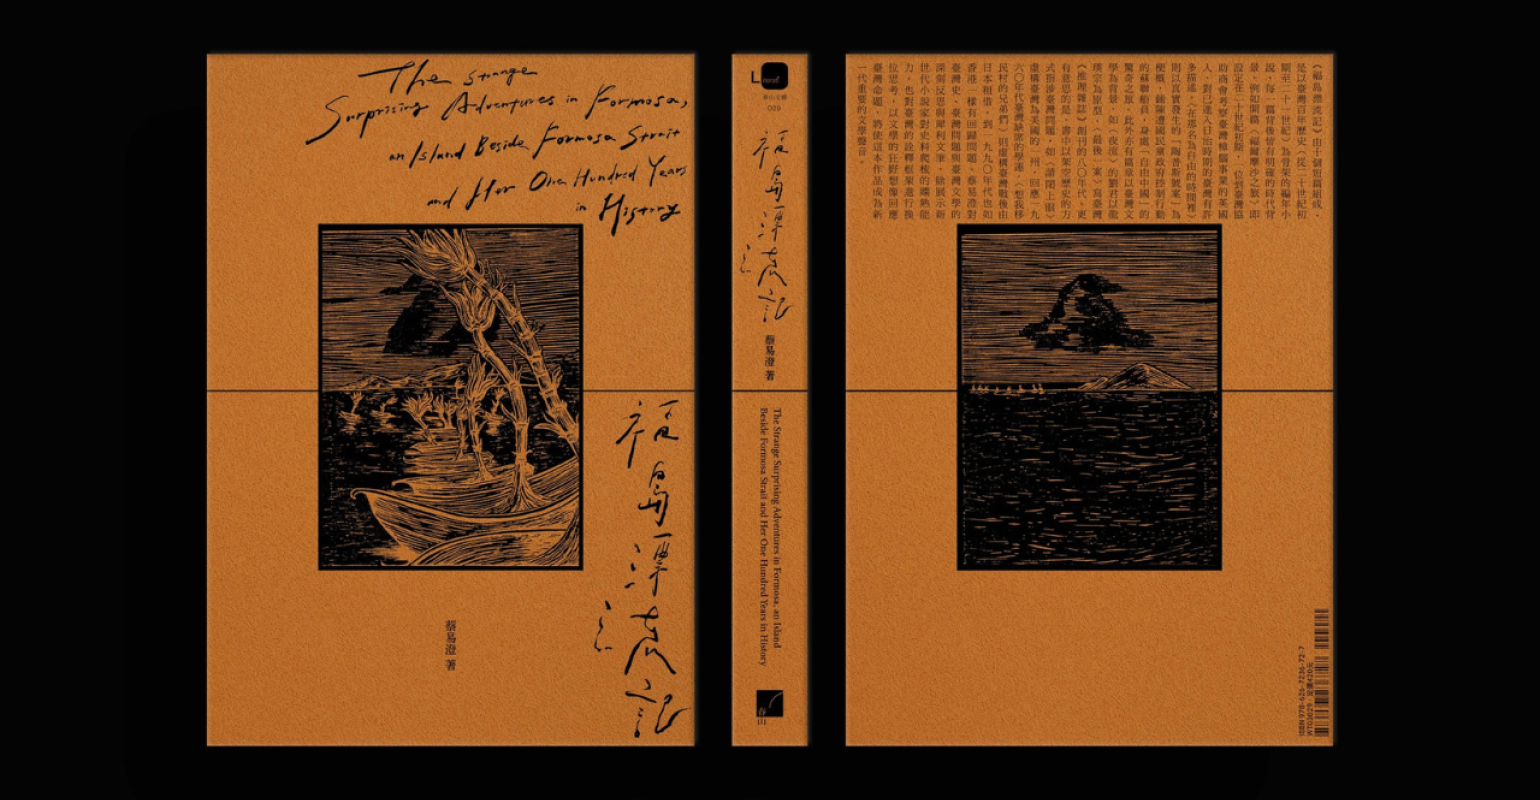 The Strange
Surprising Adventures in Formosa,
an Island Beside Formosa Strait
and Her One Hundred Years
in History
福島漂流記
蔡易澄 著
春山文藝
029
福島漂流記
蔡易澄 著
The Strange Surprising Adventures in Formosa, an Island
Beside Formosa Strait and Her One Hundred Years in History
春山
《福島漂流記》由十個短篇組成，
是以臺灣百年歷史（從二十世紀初
期至二十一世紀）為骨架的編年小
說，每一篇背後皆有明確的時代背
景，例如開篇〈福爾摩沙之旅〉即
設定在二十世紀初期，一位到臺灣協
助商會考察臺灣樟腦事業的英國
人，對已進入日治時期的臺灣有許
多描述，〈在那名為自由的時間裡〉
則以真實發生的「陶普斯號案」為
梗概，鋪陳遭國民黨政府授命行動
的蘇聯船員，身處「自由中國」的
驚奇之旅，此外亦有篇章以臺灣文
學為背景，如〈夜流〉的劉君以龍
瑛宗為原型，〈最後一案〉寫臺灣
《推理雜誌》創刊的八〇年代。更
有意思的是，書中以架空歷史的方
式指涉臺灣問題，如〈請閉上眼〉
虛構臺灣為美國的一州，回應一九
六〇年代臺灣缺席的學運，〈想我移
民村的兄弟們〉則虛構臺灣戰後由
日本租借，到一九九〇年代也如
香港一樣有回歸問題。蔡易澄對
臺灣史、臺灣問題與臺灣文學的
深刻反思與犀利文筆，除展示新
世代小說家對史料爬梳的嫻熟能
力，也對臺灣的詮釋框架進行換
位思考，以文學的狂野想像回應
臺灣命題，將使這本作品成為新
一代重要的文學聲音。
ISBN 978-626-7236-72-7
WT03029 定價420元